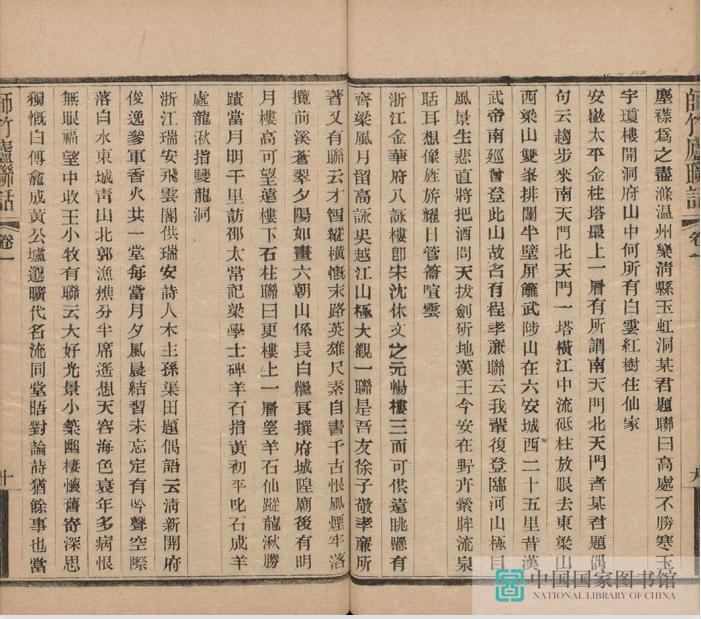 師竹廬聯話
卷一
九
塵襟爲之盡滌温州樂淸縣玉虹洞某君題聯曰高處不勝寒玉
宇瓊樓開洞府山中何所有白雲紅樹住仙家
安徽太平金柱塔最上一層有所謂南天門北天門者某君題偶
句云趨步來南天門北天門一塔橫江中流砥柱放眼去東梁山
西梁山雙峯排闥半壁屛籬武陟山在六安城西二十五里昔漢
武帝南廵曾登此山故名有程孝廉聯云我輩復登臨河山極目
風景生悲直將把酒問天拔劍斫地漢王今安在野卉縈眸流泉
聒耳想像旌旂耀日管籥喧雲
浙江金華府八詠樓卽宋沈休文之元暢樓三面可供遠眺懸有
齊梁風月留高詠吳越江山極大觀一聯是吾友徐子敬孝廉所
著又有聯云才智縱橫慨末路英雄尺素自書千古恨風煙牢落
攬前溪蒼翠夕陽如畫六朝山係長白繼良撰府城隍廟後有明
月樓高可望遠樓下石柱聯曰更樓上一層望羊石仙蹤龍湫勝
蹟當月明千里訪邵太常記梁學士碑羊石指黃初平叱石成羊
處龍湫指雙龍洞
浙江瑞安飛雲閣供瑞安詩人木主孫渠田題偶語云淸新開府
俊逸參軍香火共一堂每當月夕風晨結習未忘定有吟聲空際
落白水東城靑山北郭漁樵分半席遙想天容海色衰年多病恨
無眼福望中收王小牧有聯云大好光景小築幽棲懷舊寄深思
獨慨白傅龕成黃公壚邈曠代名流同堂晤對論詩猶餘事也當
師竹廬聯話
卷一
十
中国国家图书馆
NATIONAL LIBRARY OF CHINA